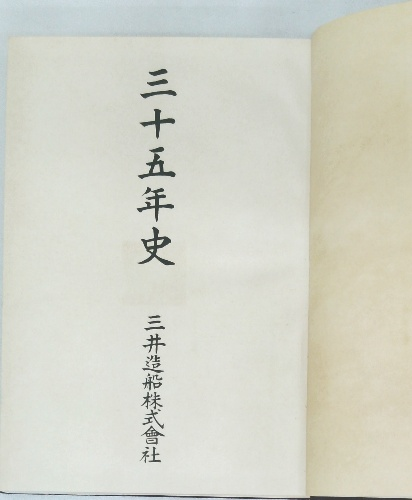 三十五年史
三井造船株式會社